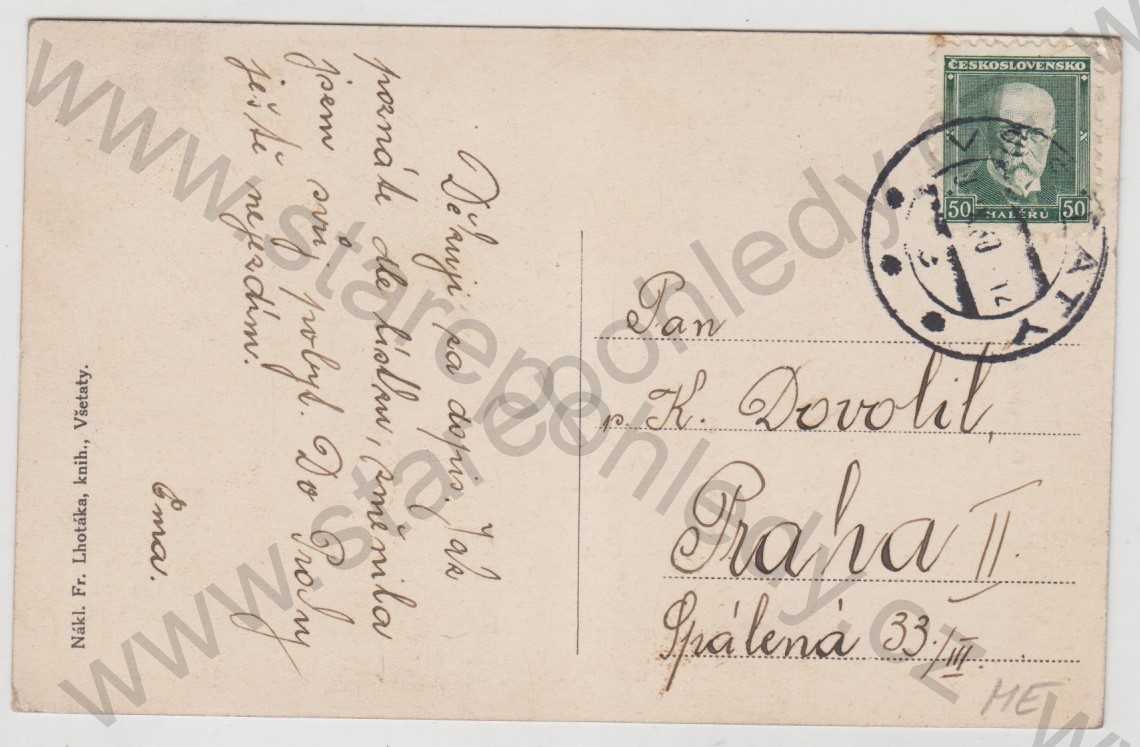 Děkuji za dopis. Jak
poznáte dle lístku, změnila
jsem svůj pobyt. Do Prahy
ještě nejezdím.
Ema.
Nákl. Fr. Lhotáka, knih., Všetaty.
ČESKOSLOVENSKO
50 HALÉŘŮ 50
Pan
p. K. Dovolil,
Praha II.
Spálená 33./III.
ME
www.starepohledy.cz
www.starepohledy.cz